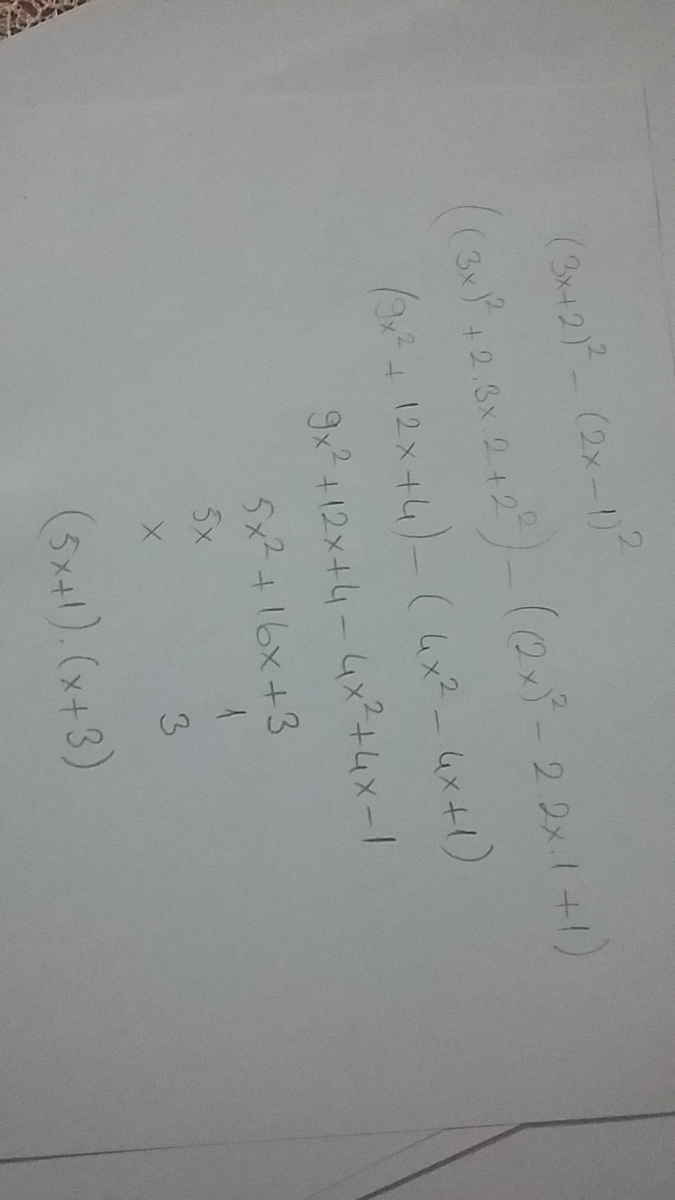 (3x+2)² - (2x-1)²
((3x)² + 2.3x.2+2²) - ((2x)² - 2.2x.1 +1)
(9x² + 12x+4) - (4x² - 4x+1)
9x²+12x+4 - 4x²+4x-1
5x² + 16x+3
5x 1
x 3
(5x+1).(x+3)